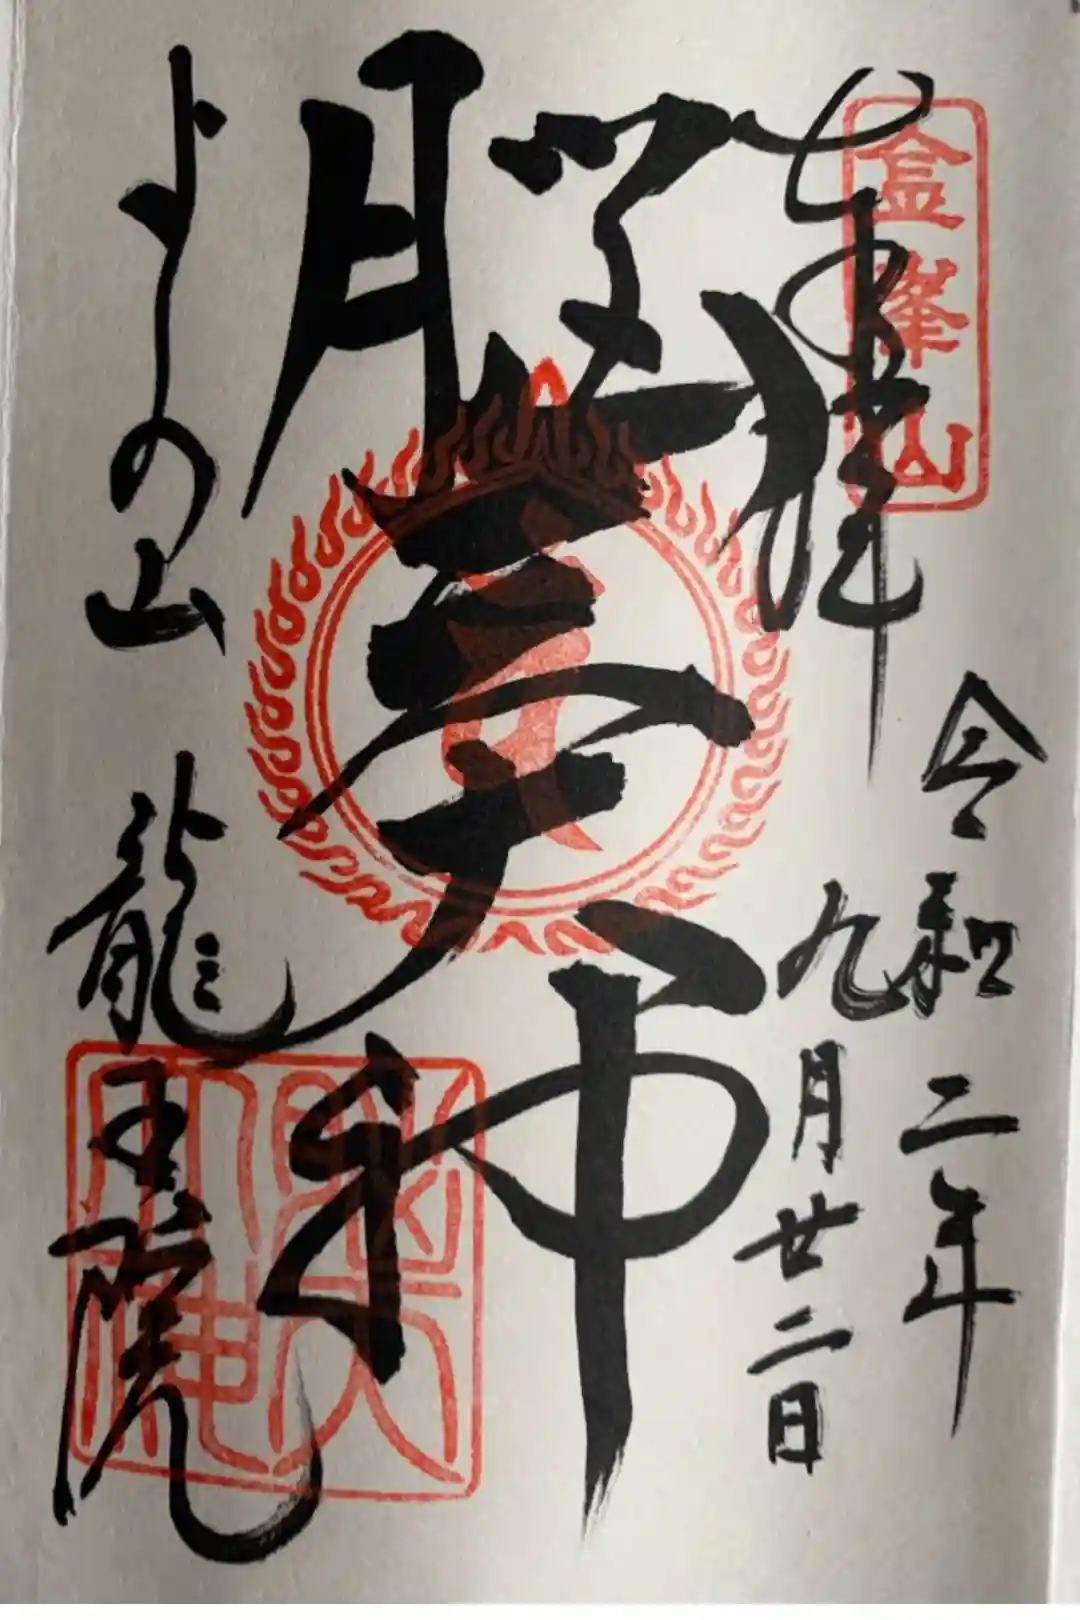 金峯山
奉拝
令和二年
九月廿二日
脳天大神
よしの山 龍王院